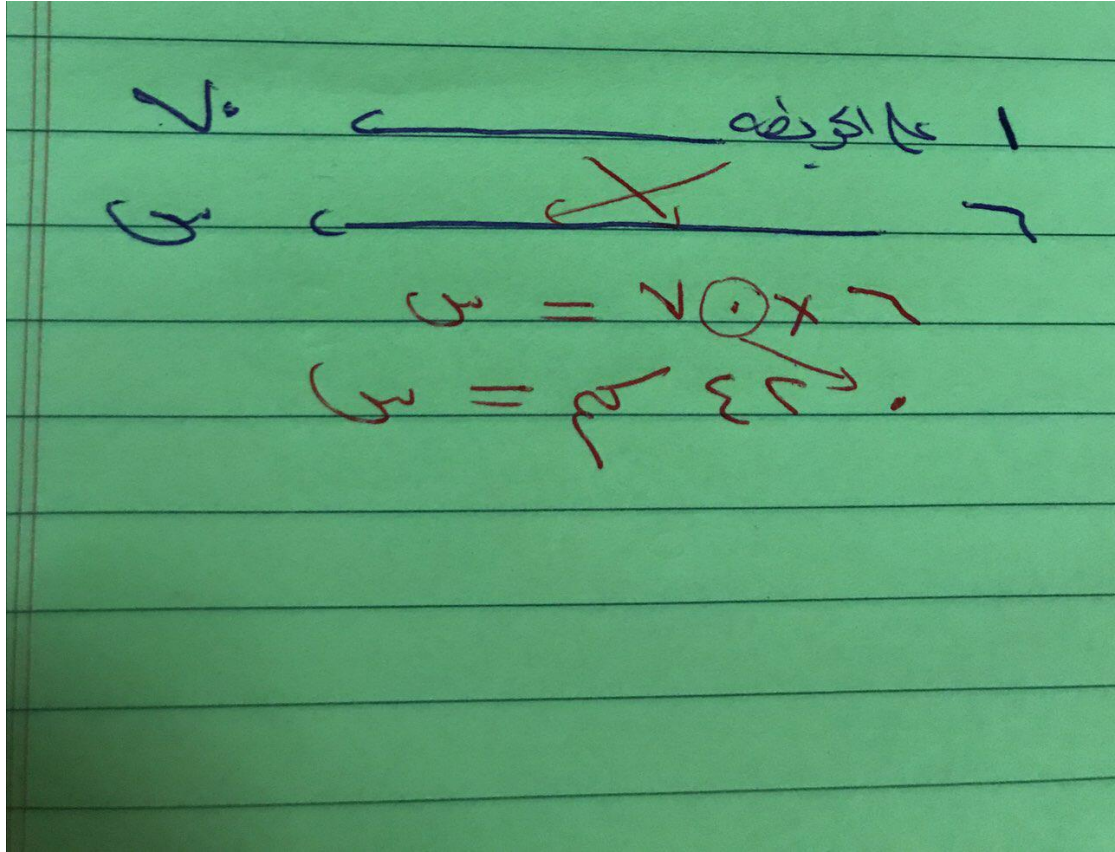 ١ على الخريطه ٧٠
٦ س
٦ × ٧٠ = س
٤٢٠ كم = س